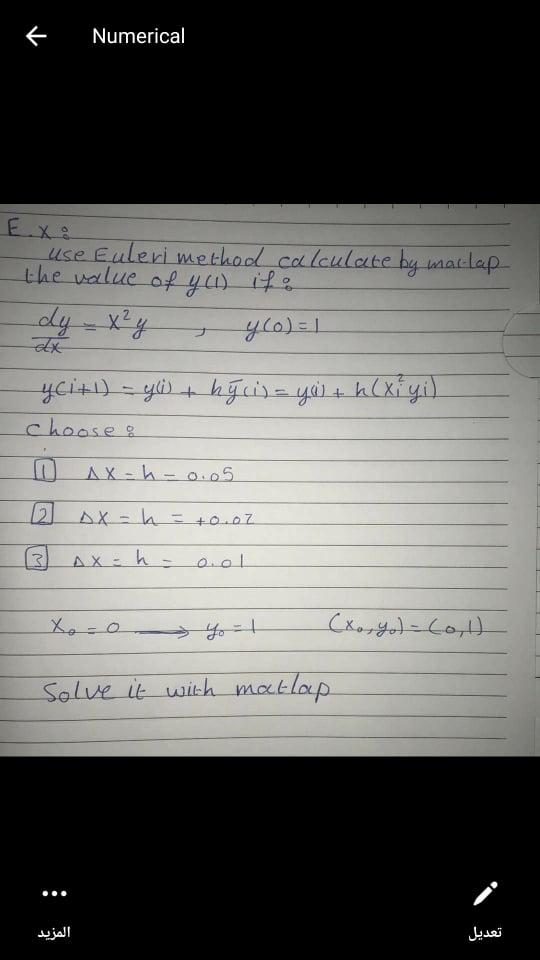 Numerical
E.x:
use Euleri method calculate by matlap
the value of y(1) if:
dy/dx = x²y , y(0)=1
y(i+1) = y(i) + hȳ(i) = y(i) + h(xi² yi)
choose:
1 Δx = h = 0.05
2 Δx = h = +0.02
3 Δx = h = 0.01
x₀ = 0 → y₀ = 1 (x₀,y₀) = (0,1)
Solve it with matlap
المزيد
تعديل